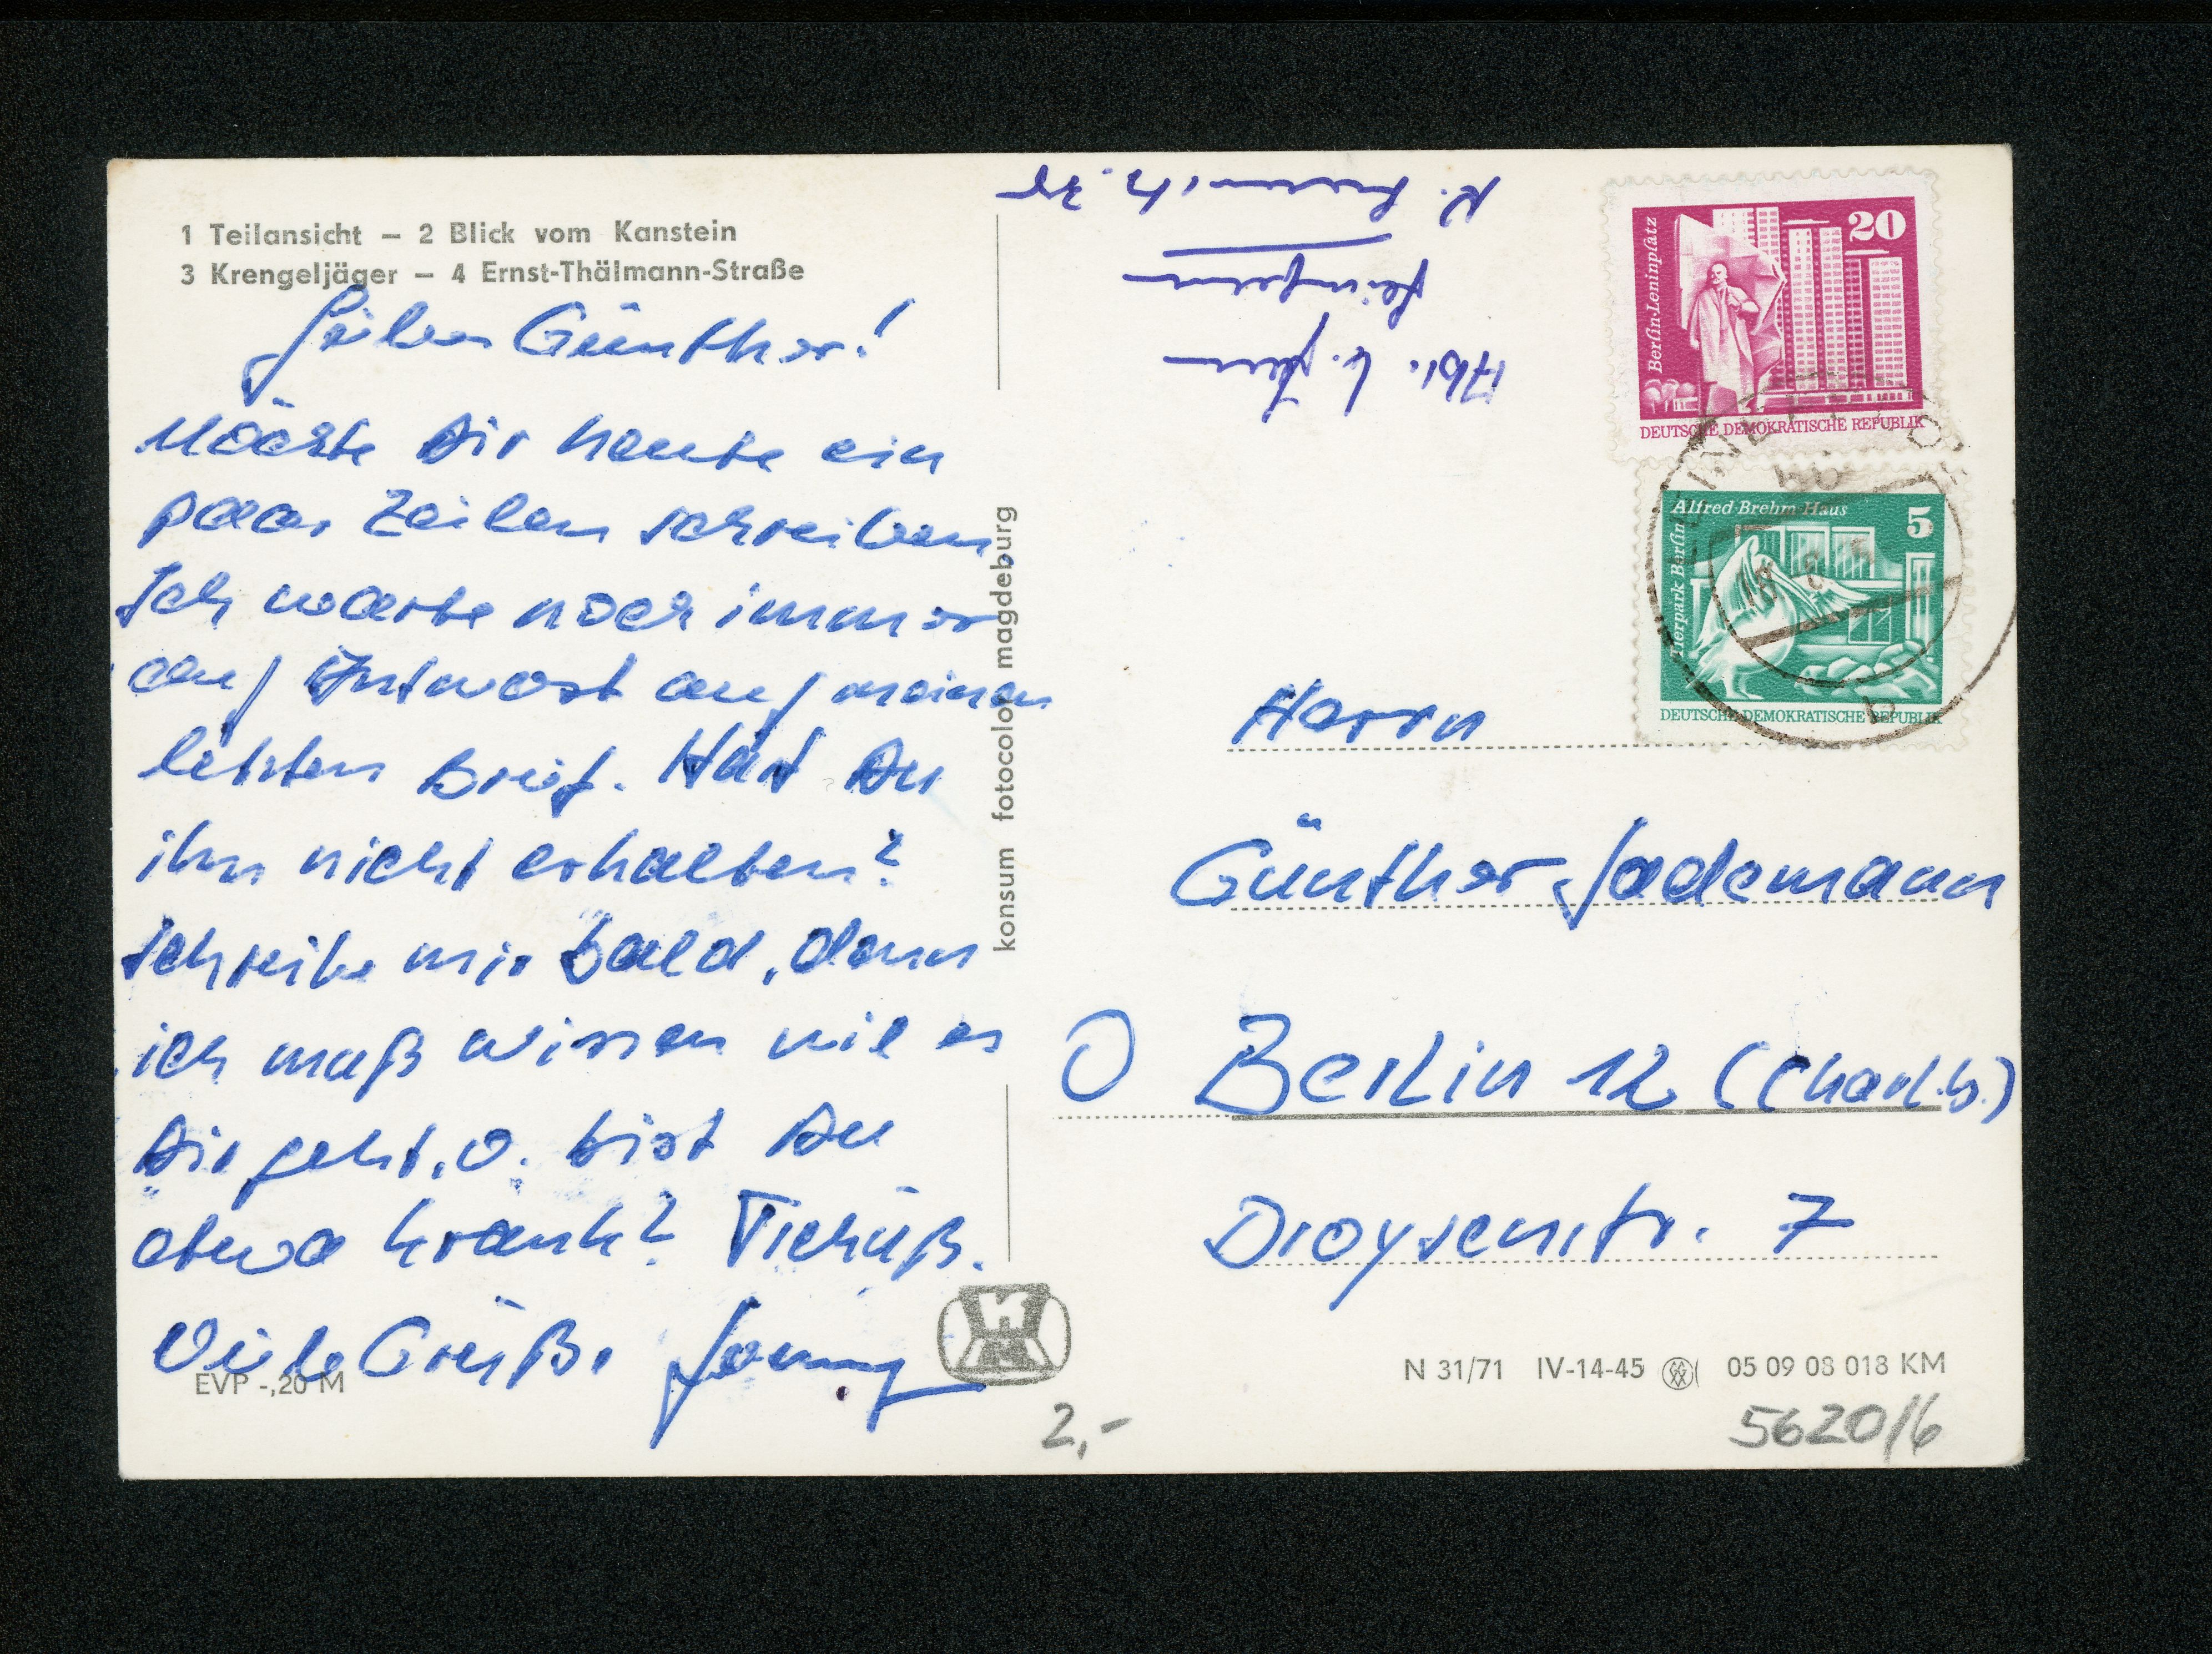 1 Teilansicht – 2 Blick vom Kanstein
3 Krengeljäger – 4 Ernst-Thälmann-Straße
Lieber Günther!
Möchte Dir heute ein
paar Zeilen schreiben.
Ich warte noch immer
auf Antwort auf meinen
letzten Brief. Hast Du
ihn nicht erhalten?
Schreibe mir bald, denn
ich muß wissen wie es
Dir geht, o. bist Du
etwa krank? Tschüß.
Viele Grüße
EVP -,20 M
konsum fotocolor magdeburg
Abs.
Berlin-Leninplatz
20
DEUTSCHE DEMOKRATISCHE REPUBLIK
Tierpark Berlin
Alfred-Brehm-Haus
5
DEUTSCHE DEMOKRATISCHE REPUBLIK
b
Herrn
Günther Jademann
O Berlin 12 (Charl.b.)
Droysenstr. 7
N 31/71 IV-14-45 05 09 08 018 KM
2,-
5620/6